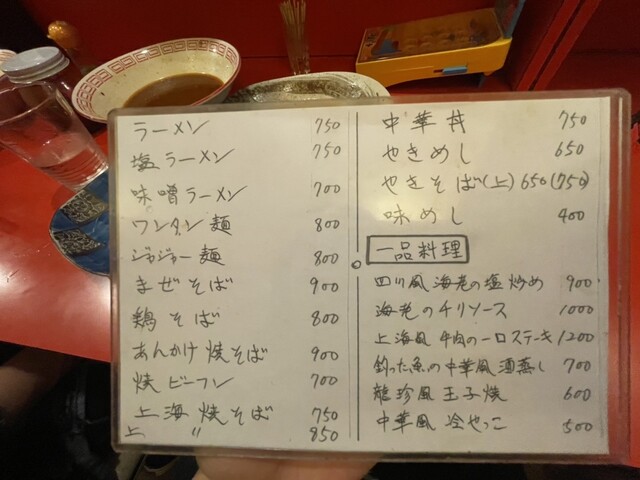 ラーメン 750
塩ラーメン 750
味噌ラーメン 700
ワンタン麺 800
ジャジャー麺 800
まぜそば 900
鶏そば 800
あんかけ焼そば 900
焼ビーフン 700
上海焼そば 750
上 〃 850
中華丼 750
やきめし 650
やきそば(上) 650(750)
味めし 400
一品料理
四川風海老の塩炒め 900
海老のチリソース 1000
上海風牛肉の一口ステーキ 1200
釣った魚の中華風酒蒸し 700
龍珍風玉子焼 600
中華風冷やっこ 500